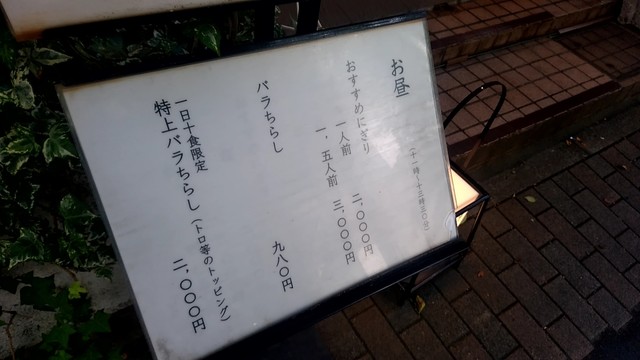 お昼 (十一時～十三時三〇分)
おすすめにぎり
一人前 二、〇〇〇円
一、五人前 三、〇〇〇円
バラちらし 九八〇円
一日十食限定
特上バラちらし(トロ等のトッピング) 二、〇〇〇円